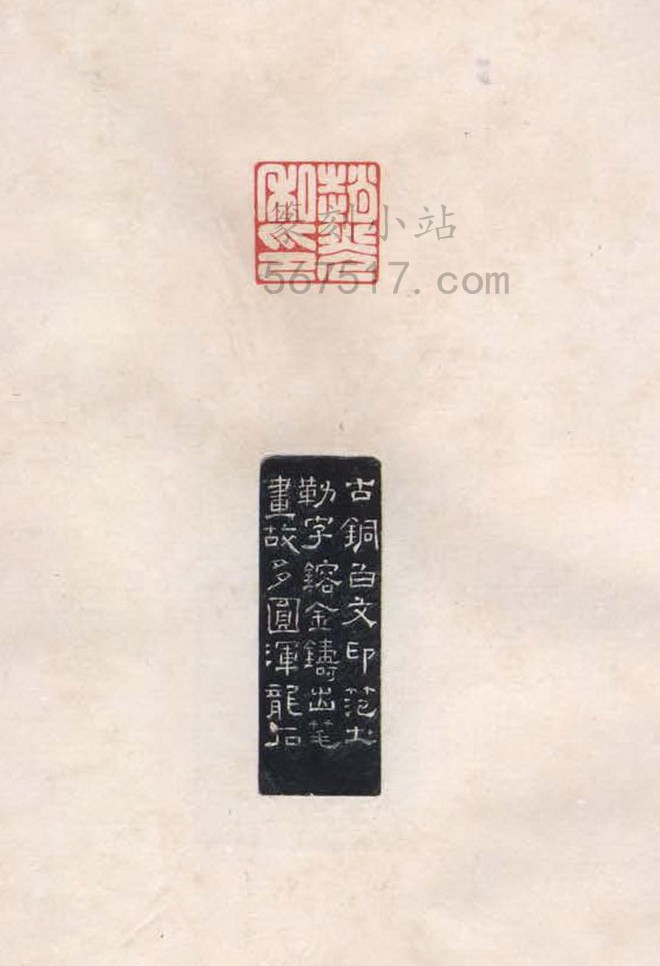 篆刻小站
567517.com
古銅白文印范土
勒字鎔金鑄出笔
畫故多圓渾龍石